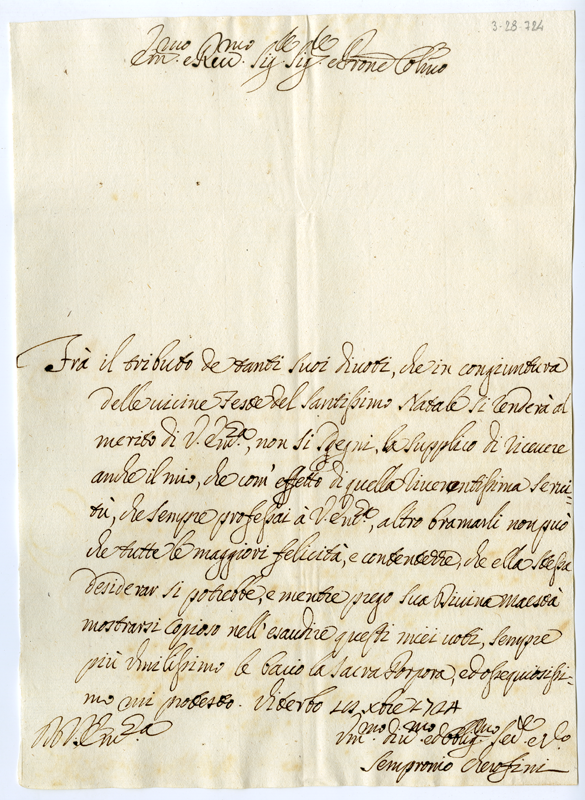 3-28-724
Em.mo e Rev.mo Sig.re Sig.re e Prone Col.mo
Frà il tributo de tanti suoi divoti, che in congiuntura
delle vicine Feste del Santissimo Natale si renderà al
merito di V. Em.za, non si sdegni, la supplico di ricevere
anche il mio, che com' effetto di quella riverentissima servi-
tù, che sempre professai à V. Em.za, altro bramarli non può
che tutte le maggiori felicità, e contentezze, che ella stessa
desiderar si potrebbe, e mentre prego Sua Divina Maestà
mostrarsi copioso nell' esaudire questi miei voti, sempre
più umilissimo le bacio la Sacra Porpora, ed ossequiosissi-
mo mi protesto. Viterbo xbre 1724
V. Em.za
Um.mo Div.mo ed Oblig.mo Ser.re
Sempronio